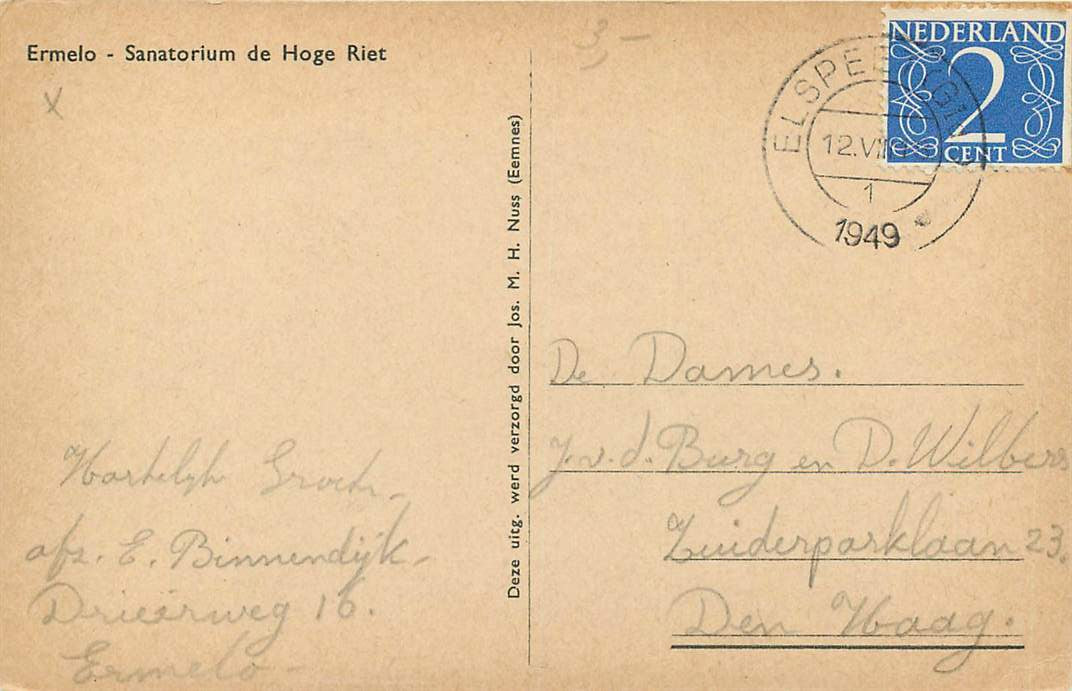 Ermelo - Sanatorium de Hoge Riet
x
3,-
NEDERLAND
2
CENT
ELSPEET
12.VII
1
1949
Deze uitg. werd verzorgd door Jos. M. H. Nuss (Eemnes)
De Dames.
J.v.d. Burg en D. Wilbers
Zuiderparklaan 23.
Den Haag.
Hartelijke Groeten
afz. E. Binnendijk
Drieërweg 16.
Ermelo -